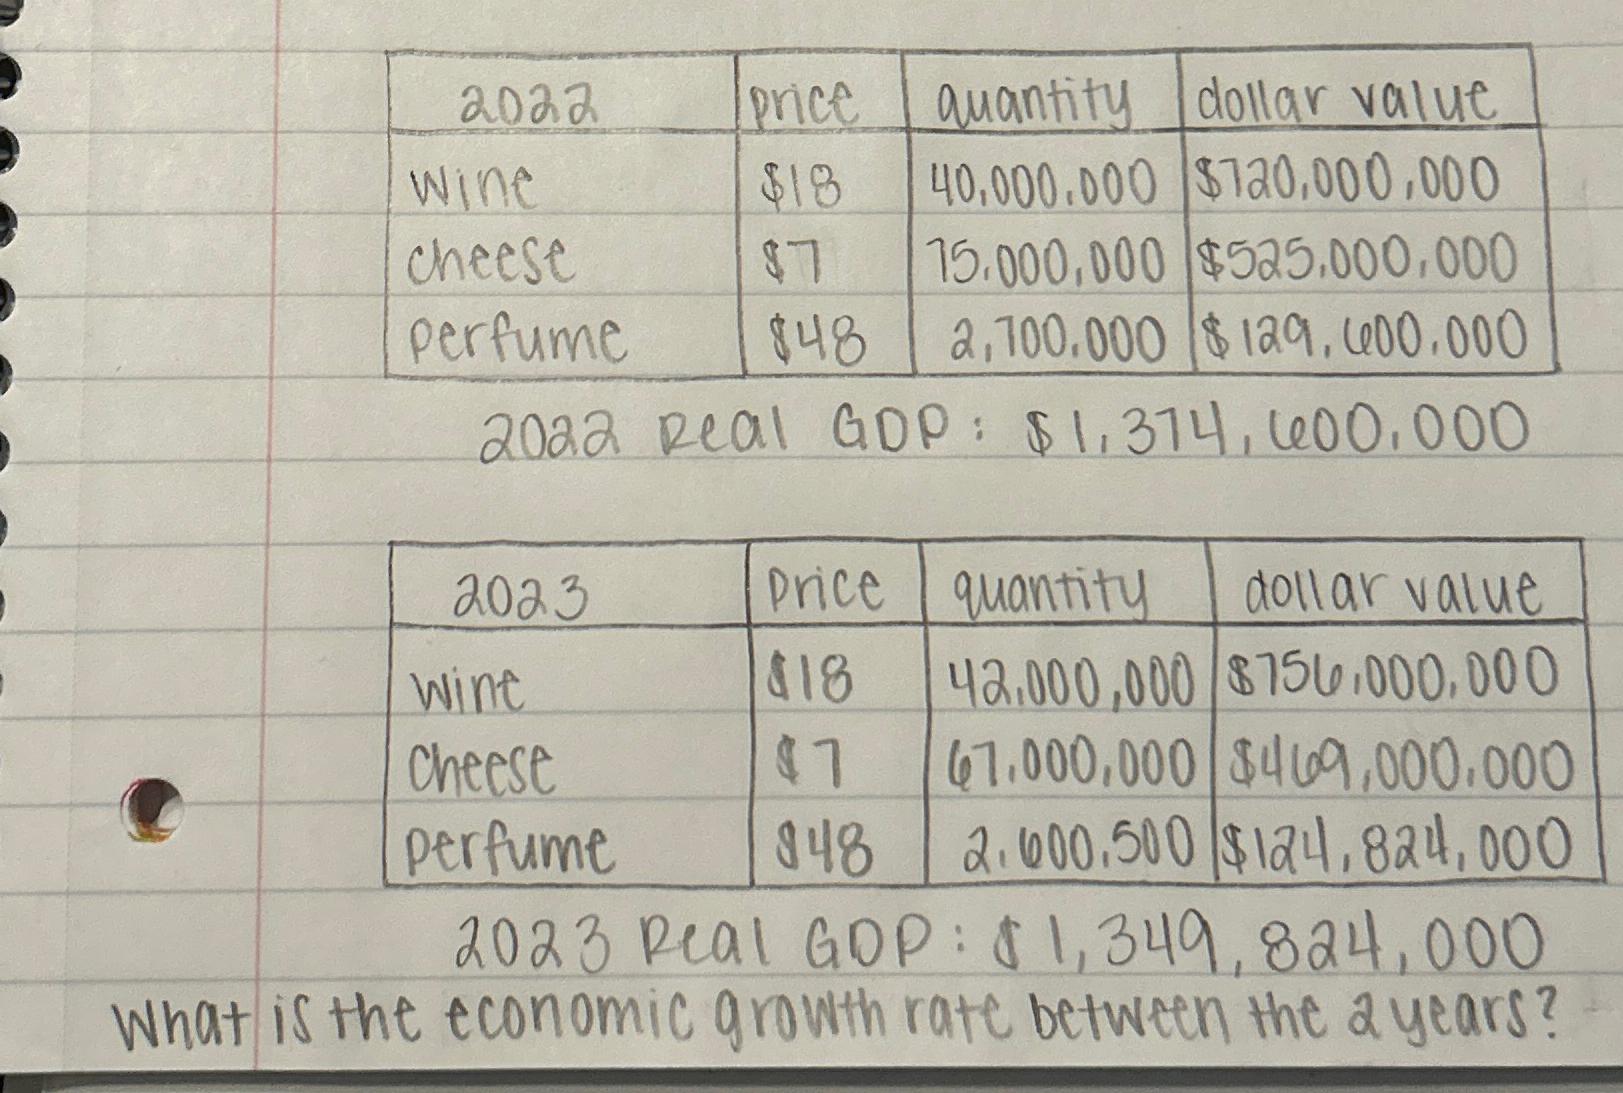 2022 price quantity dollar value
wine $18 40,000,000 $720,000,000
cheese $7 75,000,000 $525,000,000
perfume $48 2,700,000 $129,600,000
2022 Real GDP: $1,374,600,000
2023 price quantity dollar value
wine $18 42,000,000 $756,000,000
cheese $7 67,000,000 $469,000,000
perfume $48 2,600,500 $124,824,000
2023 Real GDP: $1,349,824,000
What is the economic growth rate between the 2 years?